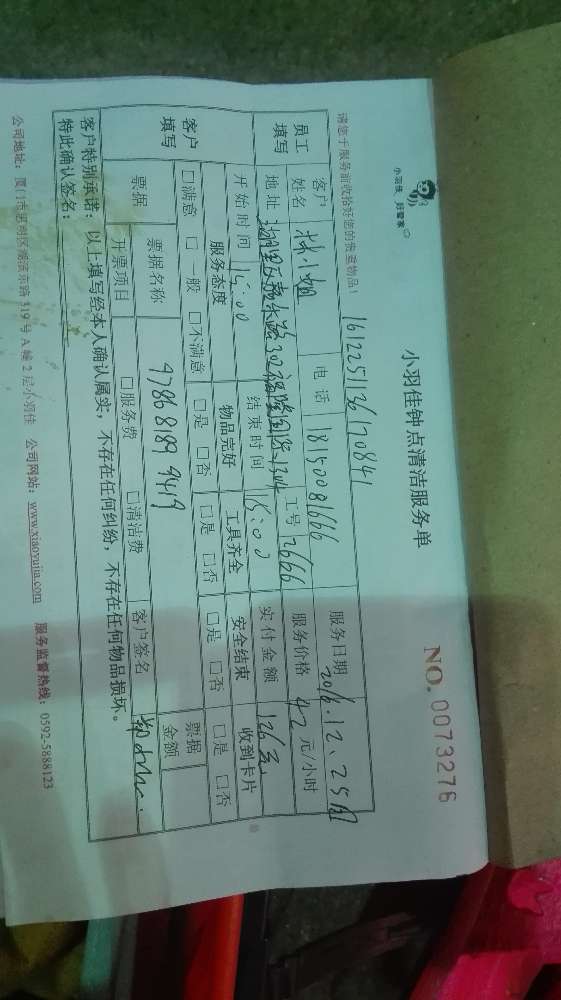 小羽佳 好管家
小羽佳钟点清洁服务单
NO. 0073276
1612251136170841
请您于服务前收拾好您的贵重物品！
员工填写 客户姓名 林小姐 电话 18150081666 服务日期 2016.12.25日
地址 工号 2666 服务价格 42 元/小时
开始时间 15:00 结束时间 15:00 实付金额 126元
客户填写 服务态度 物品完好 工具齐全 安全结束 收到卡片
□满意 □一般 □不满意 □是 □否 □是 □否 □是 □否 □是 □否
票据 票据名称 47868189 9419 票据金额
开票项目 □服务费 □清洁费 客户签名
客户特别承诺：以上填写经本人确认属实，不存在任何纠纷，不存在任何物品损坏。
特此确认签名：
公司地址：厦门市思明区湖滨东路319号A幢2层小羽佳 公司网站：www.xiaoyujia.com 服务监督热线：0592-5888123